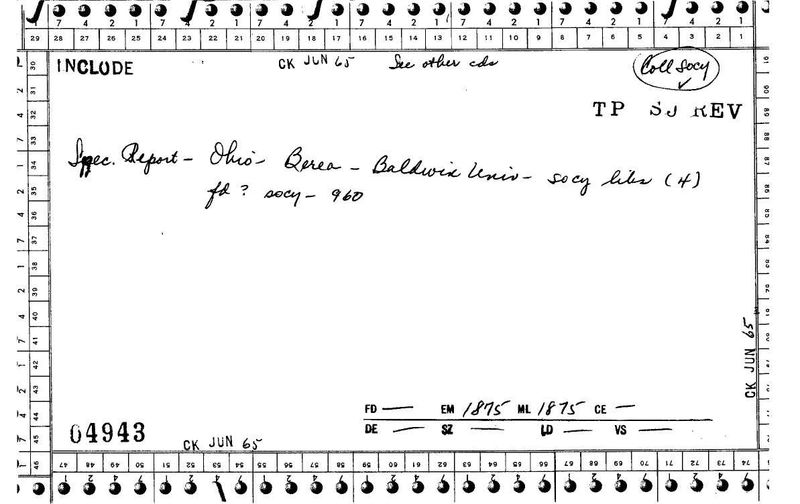 7 4 2 1 7 4 2 1 7 4 2 1 7 4 2 1 7 4 2 1 7 4 2 1 7 4 2 1
29 28 27 26 25 24 23 22 21 20 19 18 17 16 15 14 13 12 11 10 9 8 7 6 5 4 3 2 1
INCLUDE CK JUN 65 See other cds Coll Socy
TP SJ REV
Spec. Report - Ohio - Berea - Baldwin Univ - socy libs (4)
fd ? socy - 960
30 31 32 33 34 35 36 37 38 39 40 41 42 43 44 45 46
CK JUN 65
FD — EM 1875 ML 1875 CE —
DE — SZ — LD — VS —
04943
CK JUN 65
47 48 49 50 51 52 53 54 55 56 57 58 59 60 61 62 63 64 65 66 67 68 69 70 71 72 73 74